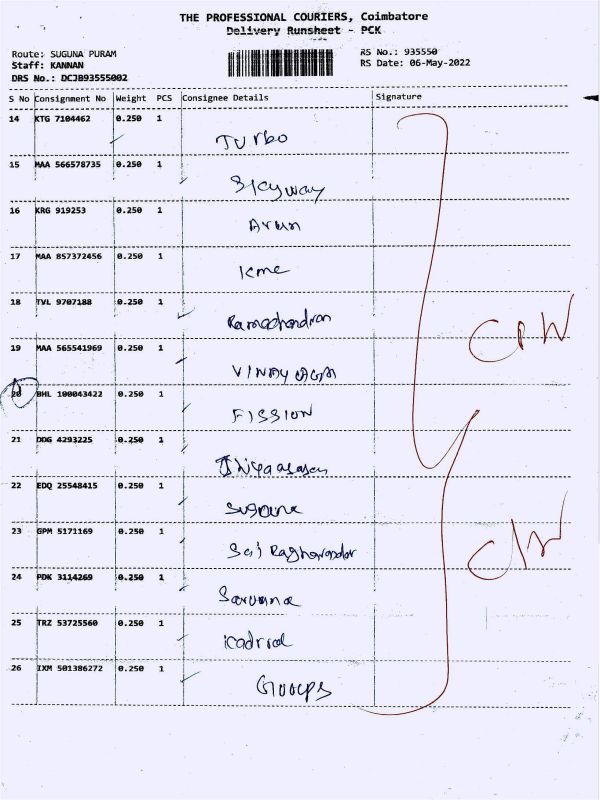 THE PROFESSIONAL COURIERS, Coimbatore
Delivery Runsheet - PCK
Route: SUGUNA PURAM
Staff: KANNAN
DRS No.: DCJB93555002
RS No.: 935550
RS Date: 06-May-2022
S No Consignment No Weight PCS Consignee Details Signature
14 KTG 7104462 0.250 1
Turbo
15 MAA 566578735 0.250 1
Skyway
16 KRG 919253 0.250 1
Arun
17 MAA 857372456 0.250 1
kme
18 TVL 9707188 0.250 1
Ramachandran
19 MAA 565541969 0.250 1
VINAYAGA
20 BHL 100043422 0.250 1
FISSION
21 DDG 4293225 0.250 1
22 EDQ 25548415 0.250 1
Suguna
23 GPM 5171169 0.250 1
Sai
24 PDK 3114269 0.250 1
Saravana
25 TRZ 53725560 0.250 1
26 IXM 501386272 0.250 1
Groups